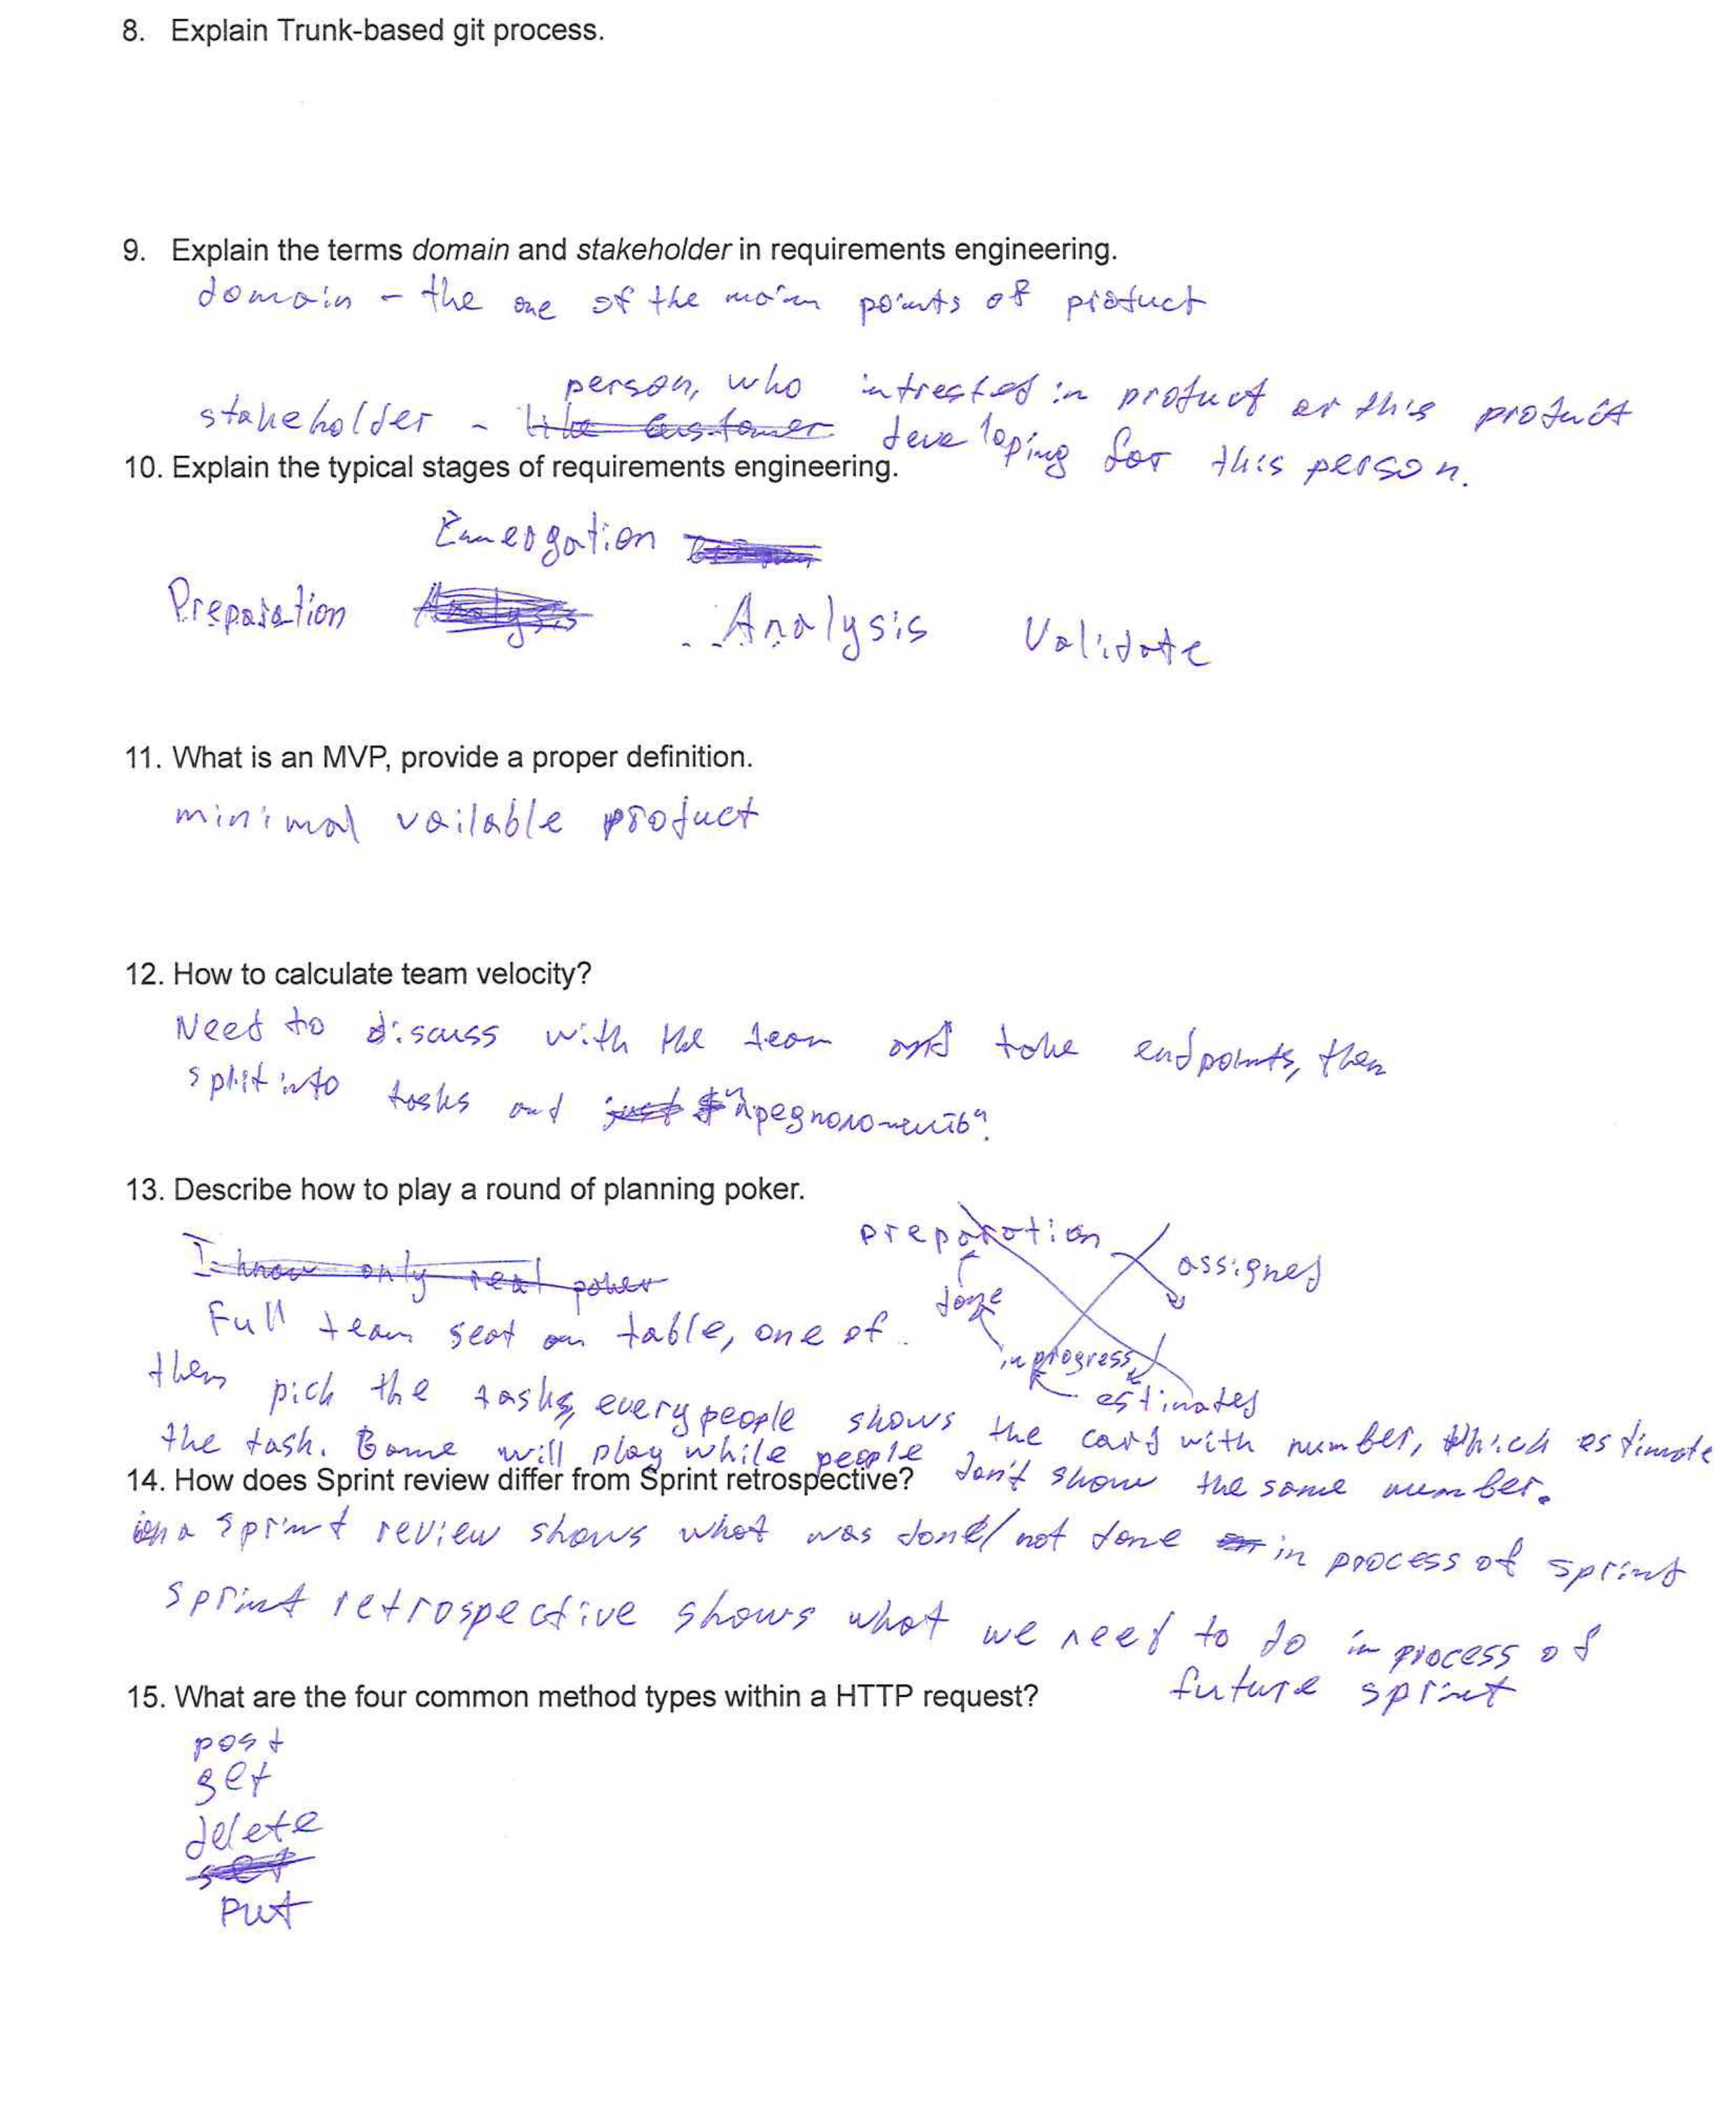 8. Explain Trunk-based git process.
9. Explain the terms domain and stakeholder in requirements engineering.
domain - the one of the main points of product
stakeholder - like customer person, who intrested in product or this product
developing for this person.
10. Explain the typical stages of requirements engineering.
Preparation Analysis Analysis Validate
11. What is an MVP, provide a proper definition.
minimal vailable product
12. How to calculate team velocity?
Need to discuss with the team and take endpoints, then
split into tasks and just "предположить".
13. Describe how to play a round of planning poker.
preparation assignes
I know only real poker
done
Full team seat on table, one of
in progress
estimates
them pick the tasks, every people shows the card with number, which estimate
the task. Game will play while people don't show the same number.
14. How does Sprint review differ from Sprint retrospective?
on a sprint review shows what was done/not done in process of sprint
sprint retrospective shows what we need to do in process of
future sprint
15. What are the four common method types within a HTTP request?
post
get
delete
set
put